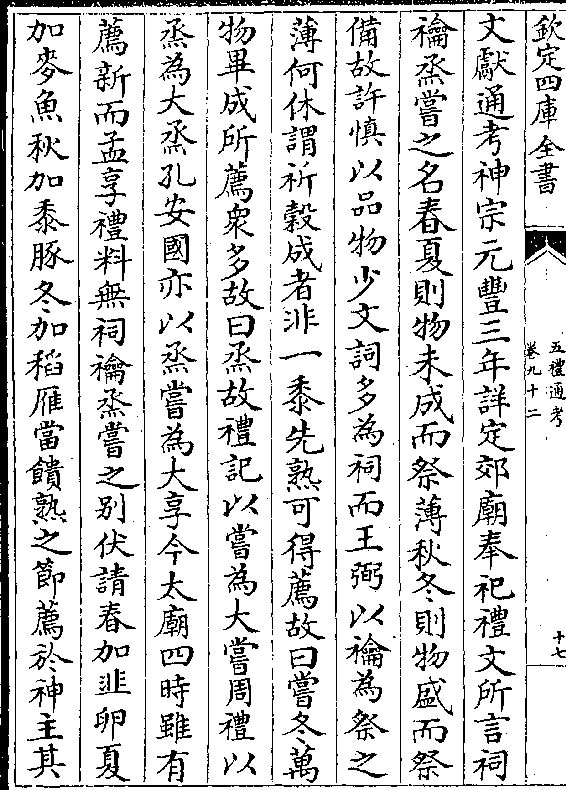 欽定四庫全書
五禮通考
卷九十二
十七
文獻通考神宗元豐三年詳定郊廟奉祀禮文所言祠
禴烝嘗之名春夏則物未成而祭薄秋冬則物盛而祭
備故許慎以品物少文詞多為祠而王弼以禴為祭之
薄何休謂祈穀成者非一黍先熟可得薦故曰嘗冬萬
物畢成所薦衆多故曰烝故禮記以嘗為大嘗周禮以
烝為大烝孔安國亦以烝嘗為大享今太廟四時雖有
薦新而孟享禮料無祠禴烝嘗之别伏請春加韭卵夏
加麥魚秋加黍豚冬加稻雁當饋熟之節薦於神主其